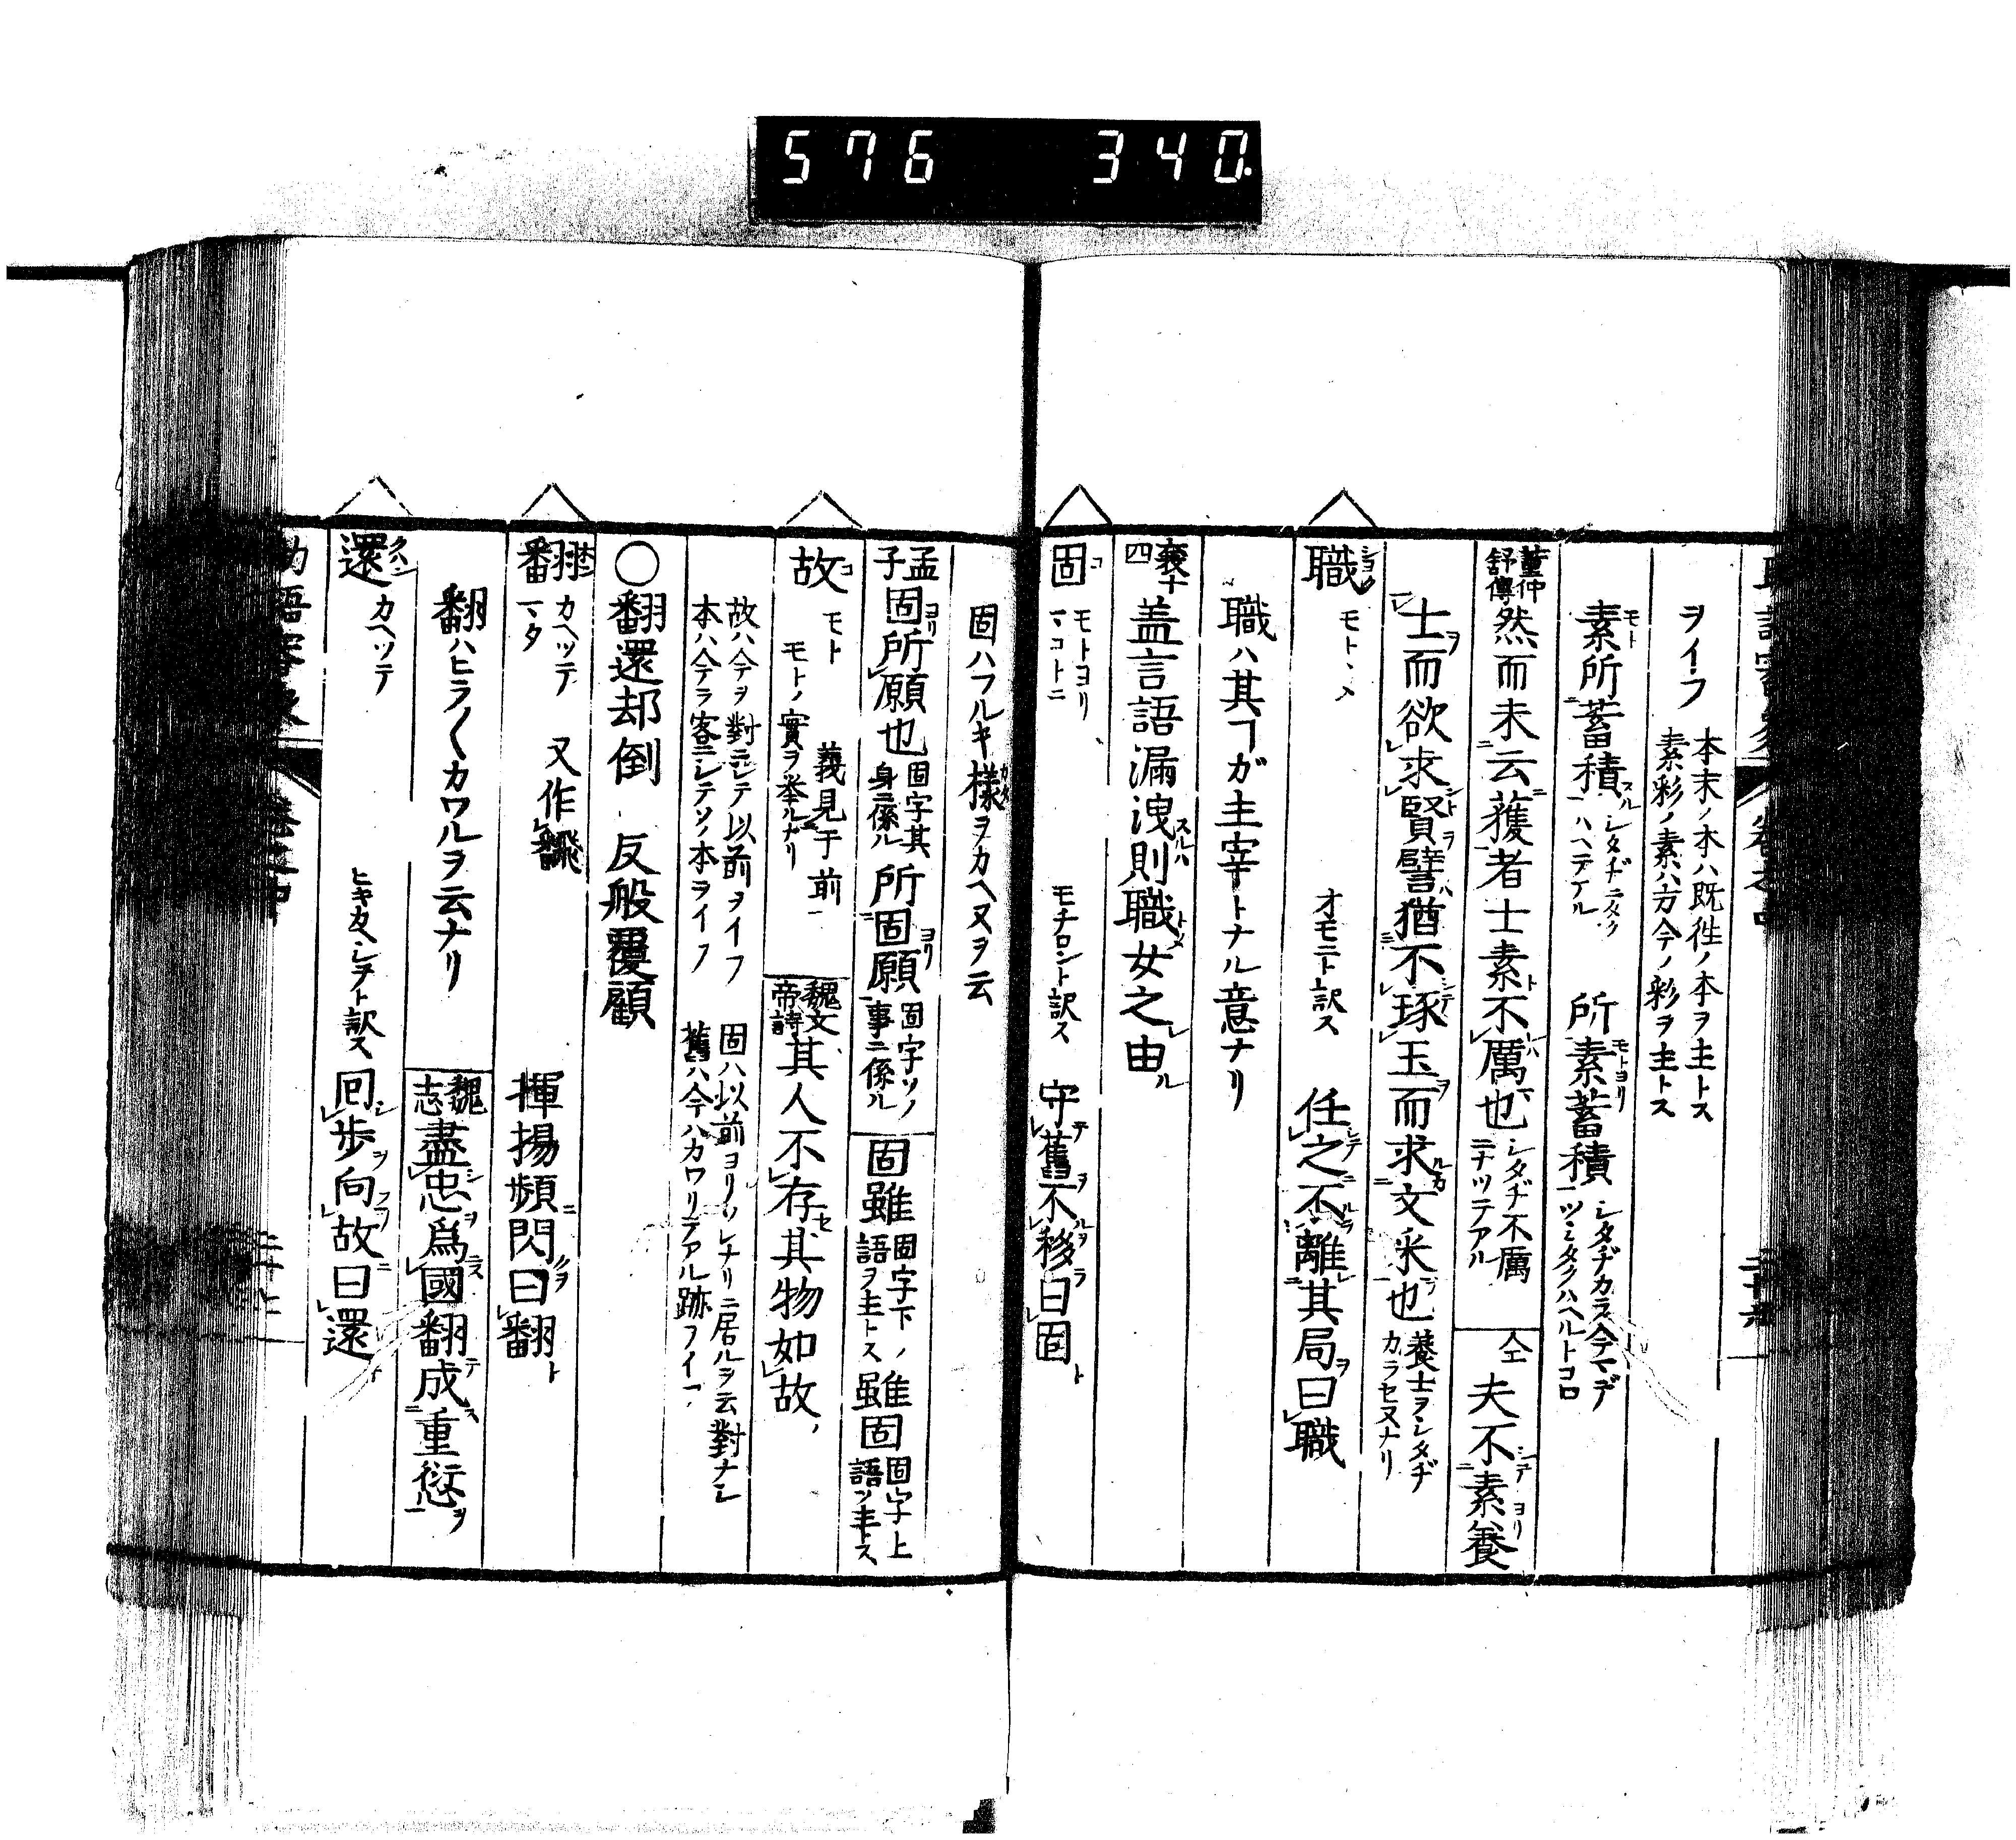 576 340.
ヲイフ 本末ノ本ハ既徃ノ本ヲ主トス
素彩ノ素ハ方今ノ彩ヲ主トス
素所蓄積 シタヂニタクハヘテアル 所素蓄積 シタヂカラ今マデツミタクハヘルトコロ
董仲舒傳 然而未云獲者士素不厲也 シタヂ不厲ニナツテアル 仝 夫不素養
士而欲求賢譬猶不琢玉而求文采也 養士ヲシタヂカラセヌナリ
職 モトヽメ オモニト訳ス 任之不離其局曰職
職ハ其ヿガ主宰トナル意ナリ
襄十四 盖言語漏洩則職女之由
固 モトヨリ マコトニ モチロント訳ス 守舊不移曰固
固ハフルキ様ヲカヘヌヲ云
孟子 固所願也 固字其身ニ係ル 所固願 固字ソノ事ニ係ル 固雖 固字下ノ雖語ヲ主トス 雖固 固字上語ヲ主トス
故 モト モトノ實ヲ挙ルナリ 義見于前 魏文帝詩 其人不存其物如故
故ハ今ヲ對ニシテ以前ヲイフ 固ハ以前ヨリソレナリニ居ルヲ云對ナシ
本ハ今ヲ客ニシテソノ本ヲイフ 舊ハ今ハカワリテアル跡ヲイフ
〇翻還却倒 反般覆顧
翻 カヘツテ マタ 又作飜 揮揚頻閃曰翻
翻ハヒラ〱カワルヲ云ナリ 魏志 盡忠爲國翻成重愆
還 カヘツテ ヒキカヘシヲト訳ス 囘歩向故曰還